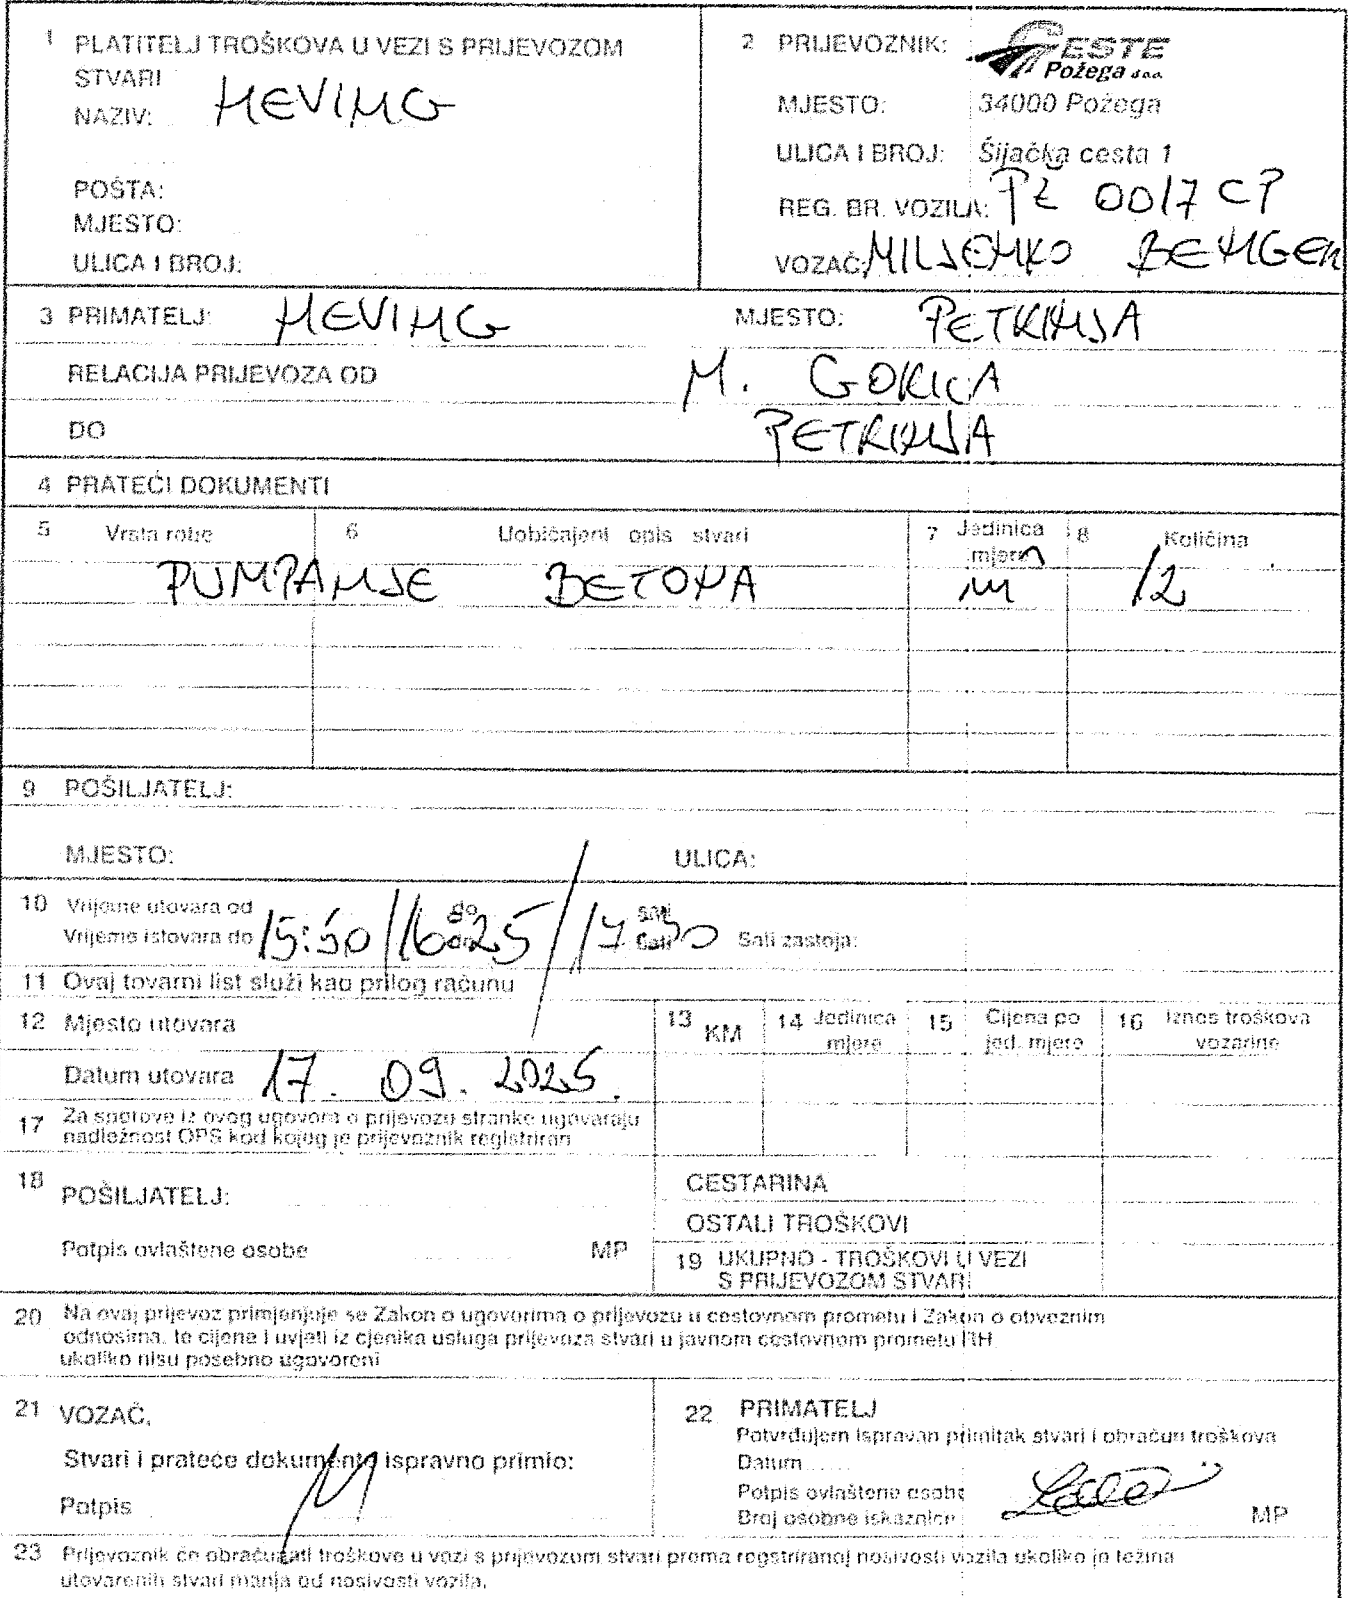 1 PLATITELJ TROŠKOVA U VEZI S PRIJEVOZOM
STVARI
NAZIV: HEVING
POŠTA:
MJESTO:
ULICA I BROJ:
2 PRIJEVOZNIK: CESTE
Požega d.o.o.
MJESTO: 34000 Požega
ULICA I BROJ: Šijačka cesta 1
REG. BR. VOZILA: PŽ 0017 CP
VOZAČ: MILJENKO BENGER
3 PRIMATELJ: HEVING MJESTO: PETRINJA
RELACIJA PRIJEVOZA OD M. GORICA
DO PETRINJA
4 PRATEĆI DOKUMENTI
5 Vrsta robe 6 Uobičajeni opis stvari 7 Jedinica mjere 8 Količina
PUMPANJE BETONA m 12
9 POŠILJATELJ:
MJESTO: ULICA:
10 Vrijeme utovara od do sati
Vrijeme istovara do 15:50 / 16:25 / 17:30 do sati Sati zastoja:
11 Ovaj tovarni list služi kao prilog računu
12 Mjesto utovara 13 KM 14 Jedinica mjere 15 Cijena po jed. mjere 16 Iznos troškova vozarine
Datum utovara 17. 09. 2025.
17 Za sporove iz ovog ugovora o prijevozu stranke ugovaraju
nadležnost OPS kod kojeg je prijevoznik registriran
18 POŠILJATELJ:
Potpis ovlaštene osobe MP
CESTARINA
OSTALI TROŠKOVI
19 UKUPNO - TROŠKOVI U VEZI
S PRIJEVOZOM STVARI
20 Na ovaj prijevoz primjenjuje se Zakon o ugovorima o prijevozu u cestovnom prometu i Zakon o obveznim
odnosima, te cijene i uvjeti iz cjenika usluga prijevoza stvari u javnom cestovnom prometu RH
ukoliko nisu posebno ugovoreni
21 VOZAČ,
Stvari i prateće dokumente ispravno primio:
Potpis
22 PRIMATELJ
Potvrđujem ispravan primitak stvari i obračun troškova
Datum
Potpis ovlaštene osobe
Broj osobne iskaznice MP
23 Prijevoznik će obračunati troškove u vezi s prijevozom stvari prema regstriranoj nosivosti vozila ukoliko je težina
utovarenih stvari manja od nosivosti vozila.